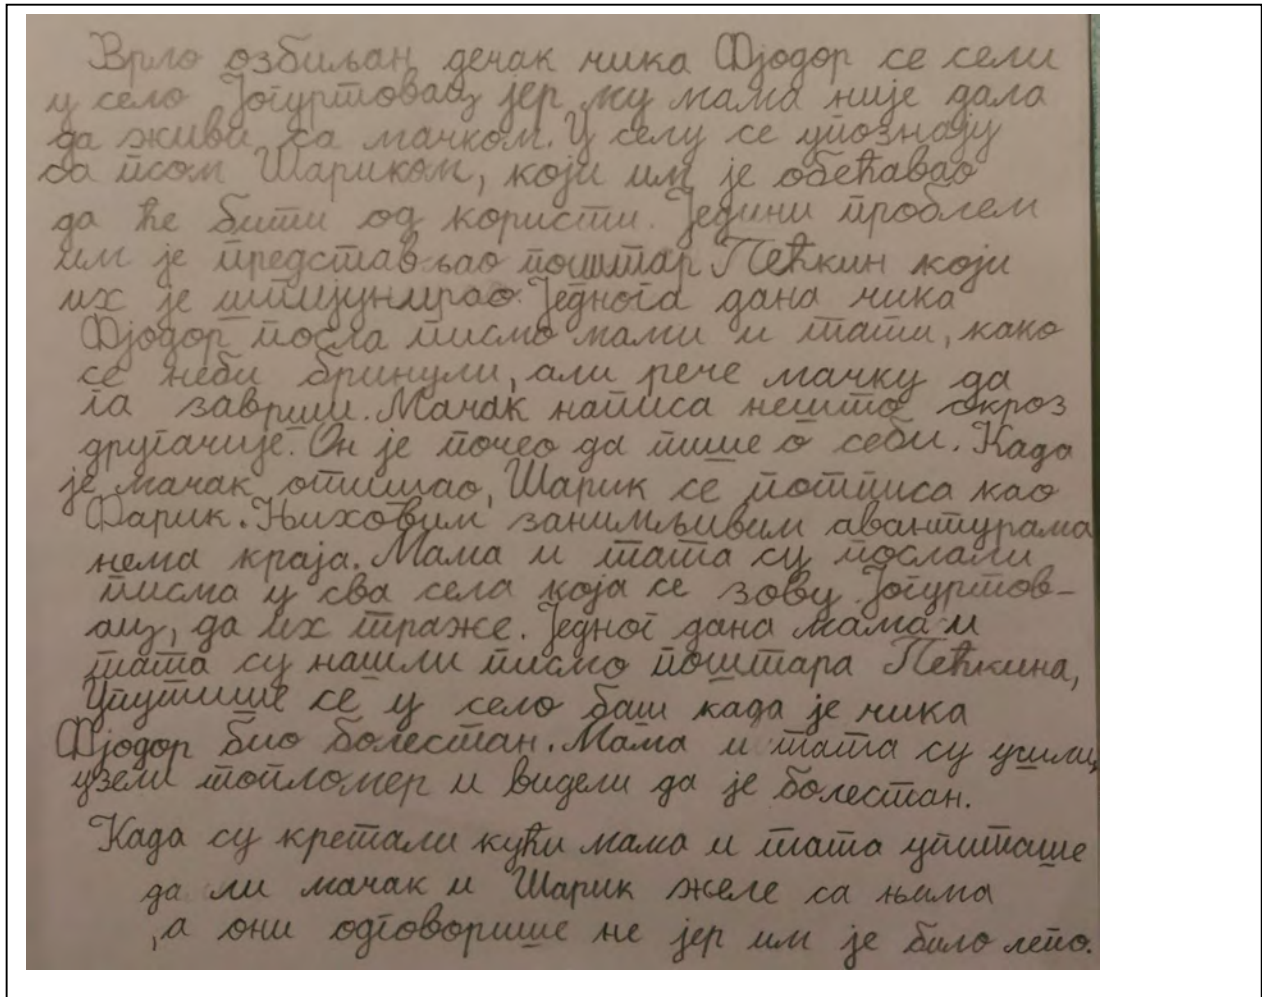 Врло озбиљан дечак чика Фјодор се сели
у село Јогуртовац, јер му мама није дала
да живи са мачком. У селу се упознају
са псом Шариком, који им је обећавао
да ће бити од користи. Једини проблем
им је представљао поштар Пећкин који
их је шпијунирао. Једнога дана чика
Фјодор посла писмо мами и тати, како
се неби бринули, али рече мачку да
га заврши. Мачак написа нешто скроз
другачије. Он је почео да пише о себи. Када
је мачак отишао, Шарик се потписа као
Фарик. Њиховим занимљивим авантурама
нема краја. Мама и тата су послали
писма у сва села која се зову Јогуртов-
ац, да их траже. Једног дана мама и
тата су нашли писмо поштара Пећкина,
Упутише се у село баш када је чика
Фјодор био болестан. Мама и тата су ушли,
узели топломер и видели да је болестан.
Када су кретали кући мама и тата упиташе
да ли мачак и Шарик желе са њима
,а они одговорише не јер им је било лепо.